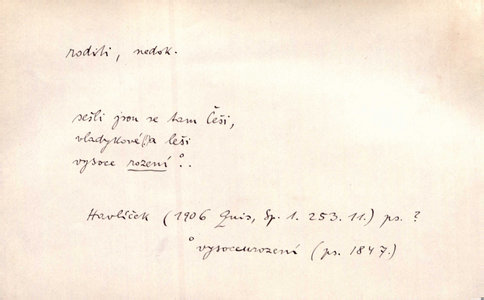 roditi, nedok.
sešli jsou se tam Češi,
vladykové a leši
vysoce rození°..
Havlíček (1906 Quis, Sp. 1. 253. 11.) ps. ?
° vysoceurození (ps. 1847.)